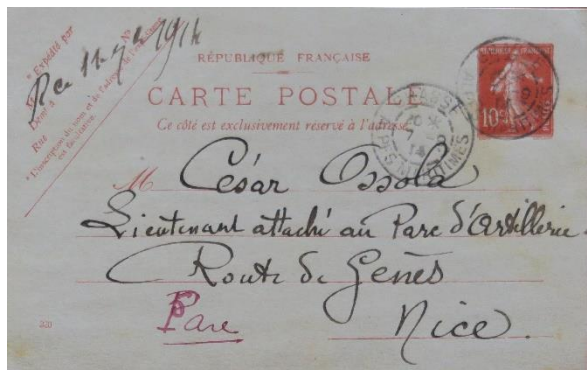 Rce 11-7bre 1914
* Expédié par
M
Demt à
Rue
N°
* L'inscription du nom et de l'adresse de l'expéditeur
est facultative.
RÉPUBLIQUE FRANÇAISE
CARTE POSTALE
Ce côté est exclusivement réservé à l'adresse.
10c
M César Ossola
Lieutenant attaché au Parc d'Artillerie.
Route de Gênes
Parc Nice.